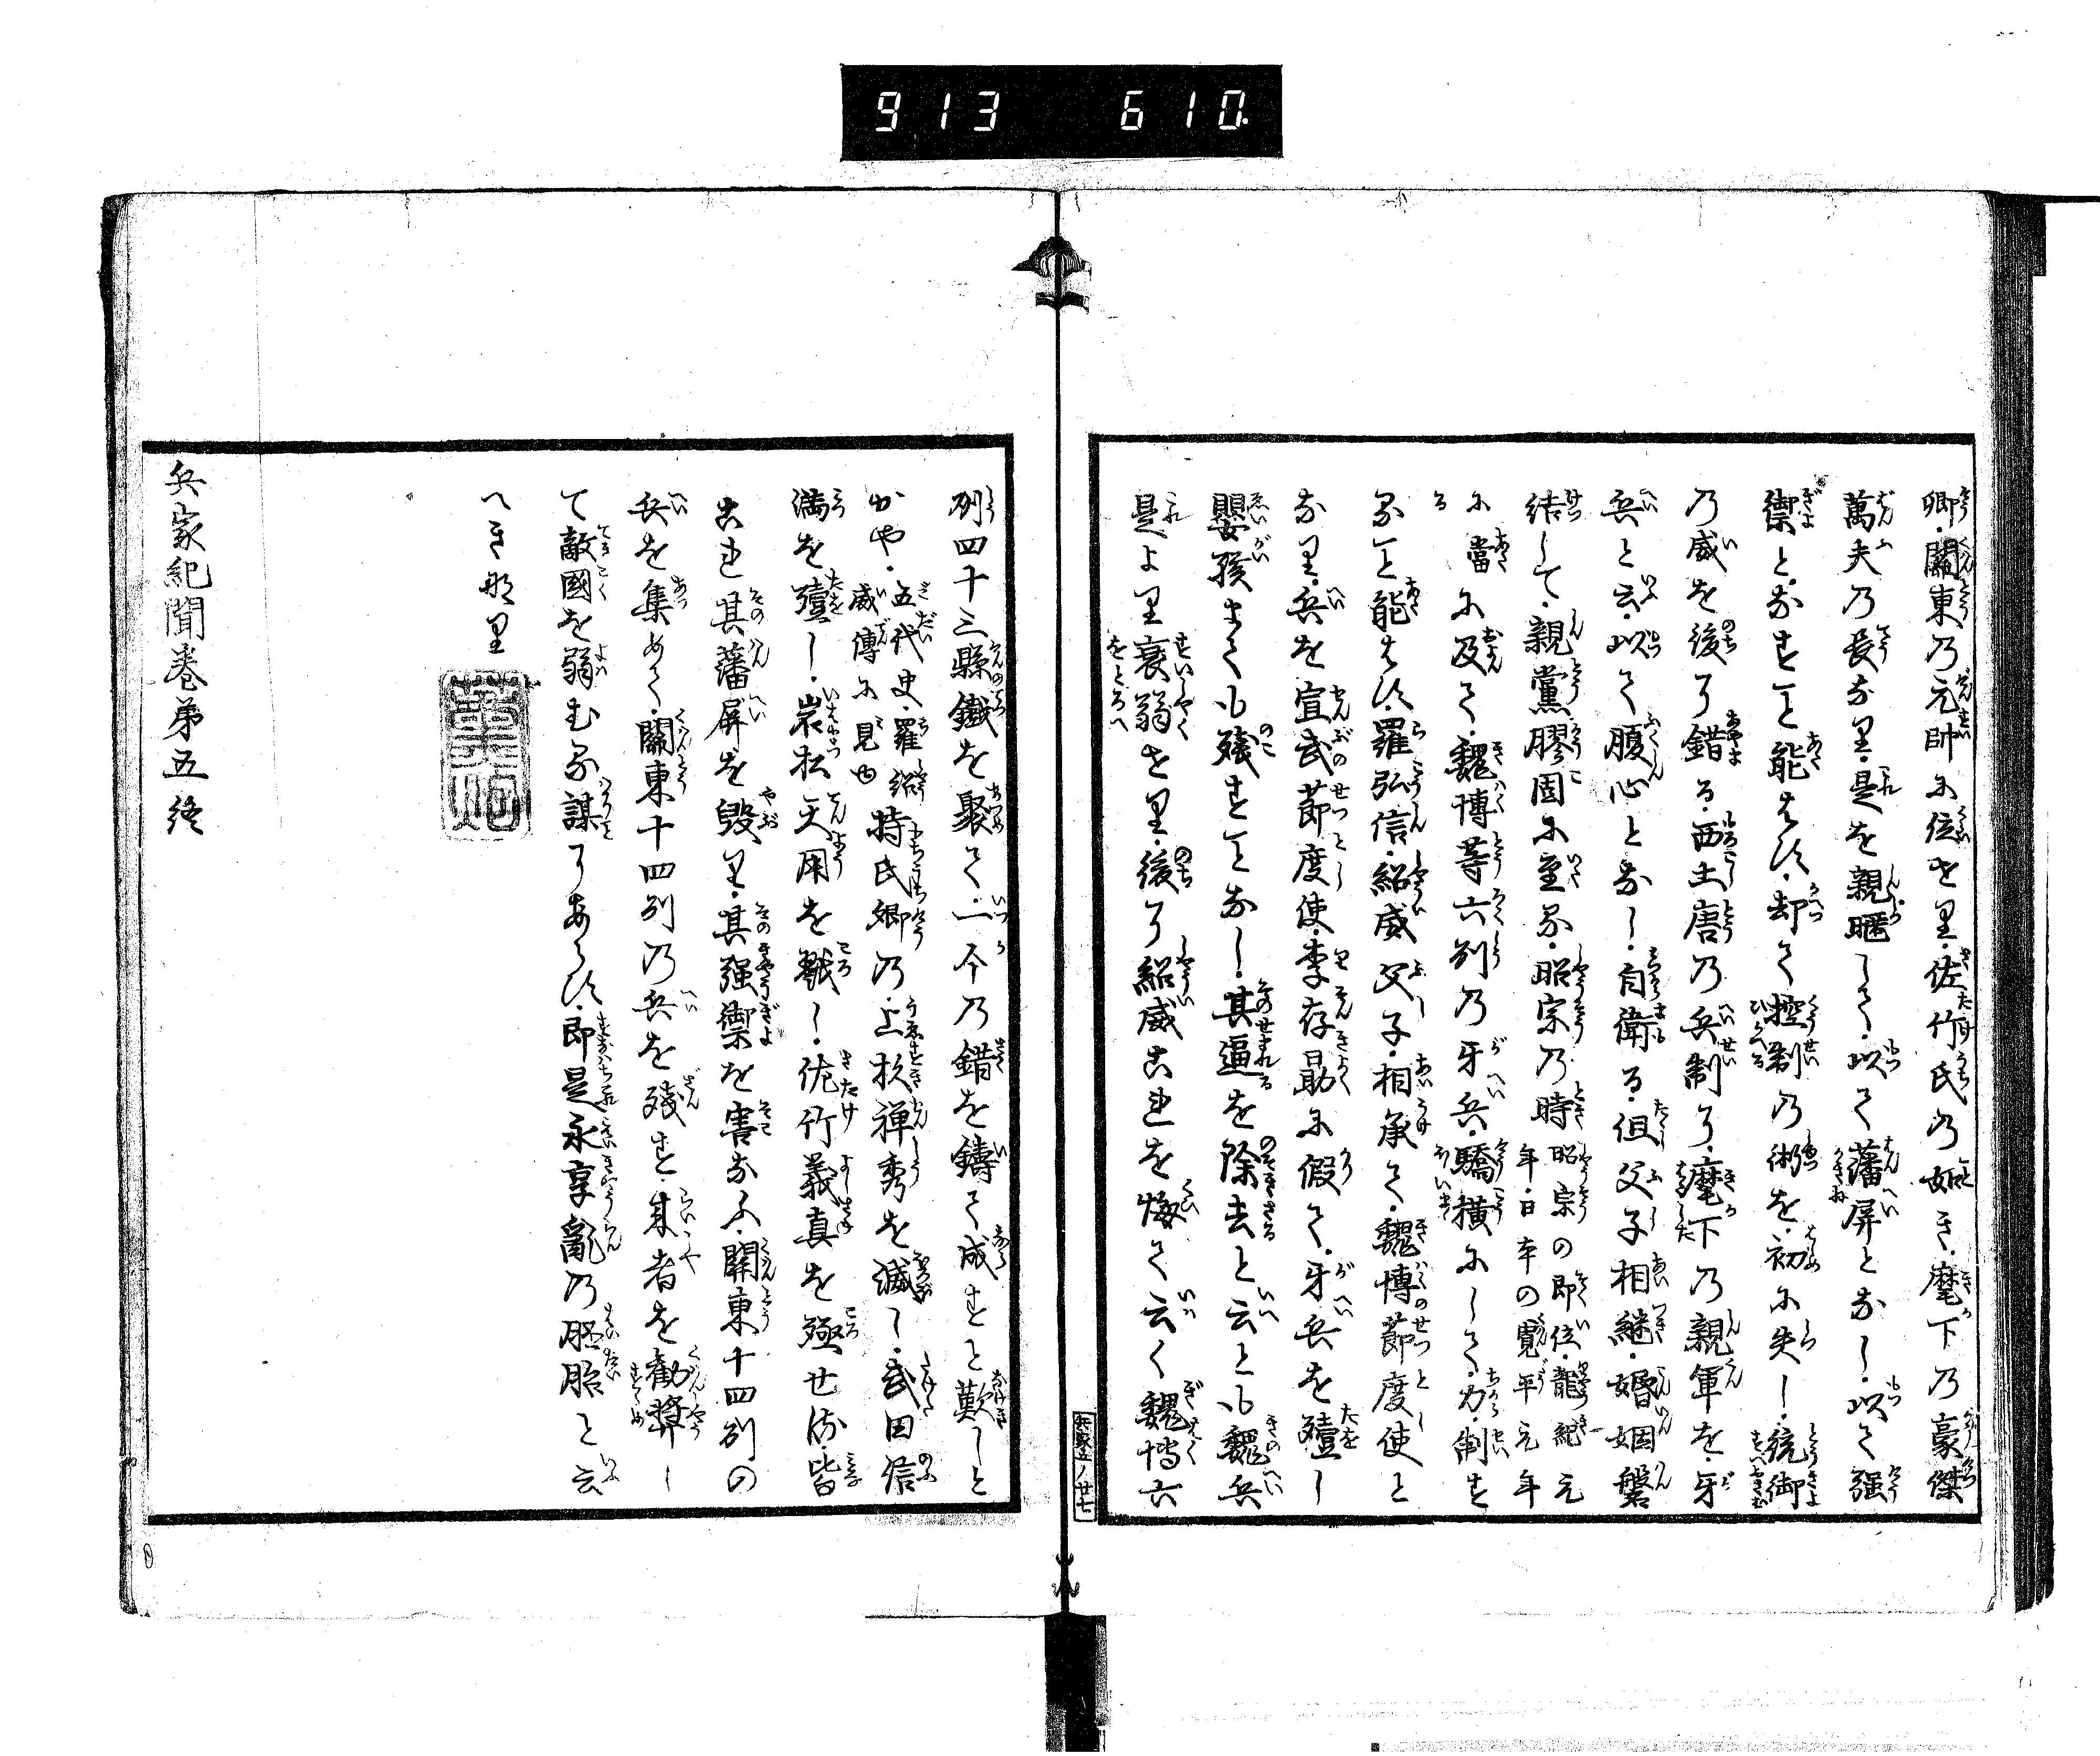 913 610
卿・關東乃元帥に位せり・佐竹氏乃如き・麾下乃豪傑
萬夫乃長なり・是を親暱して・以て藩屏となし・以て强
禦と・なすこと能はす・却て控制乃術を・初に失し・統御
乃威を後に錯る・西土唐乃兵制に・麾下乃親軍を・牙
兵と云・以て腹心となし・自衛る・但父子相継・婚姻磐
結して・親黨膠固に至る・昭宗乃時
昭宗の即位・龍紀元
年・日本の寛平元年
に當る
に及て・魏博等六州乃牙兵・驕横にして・力・制す
ること能はす・羅弘信・紹威父子・相承て・魏博節度使と
なり・兵を宣武節度使・李存勗に假て・牙兵を殪し
嬰孩まても殘すことなし・其逼を除去と云とも魏兵
是より衰弱せり・後に紹威これを悔て云く魏博六
州四十三縣鐵を聚て・一个乃錯を鑄て成すと歎しと
かや・
五代史・羅紹
威傳に見ゆ
持氏卿乃・上杦禅秀を滅し・武田信
満を殪し・岩松天用を戮し・佐竹義真を殛せ・皆
これ其藩屏を毀り・其强禦を害なふ・關東十四州の
兵を集めて・關東十四州乃兵を殘す・来者を勧奬し
て敵國を弱むる謀にあらす・即是永享亂乃胚胎と云
へきなり
兵家紀聞巻第五終
兵家五ノ廿七